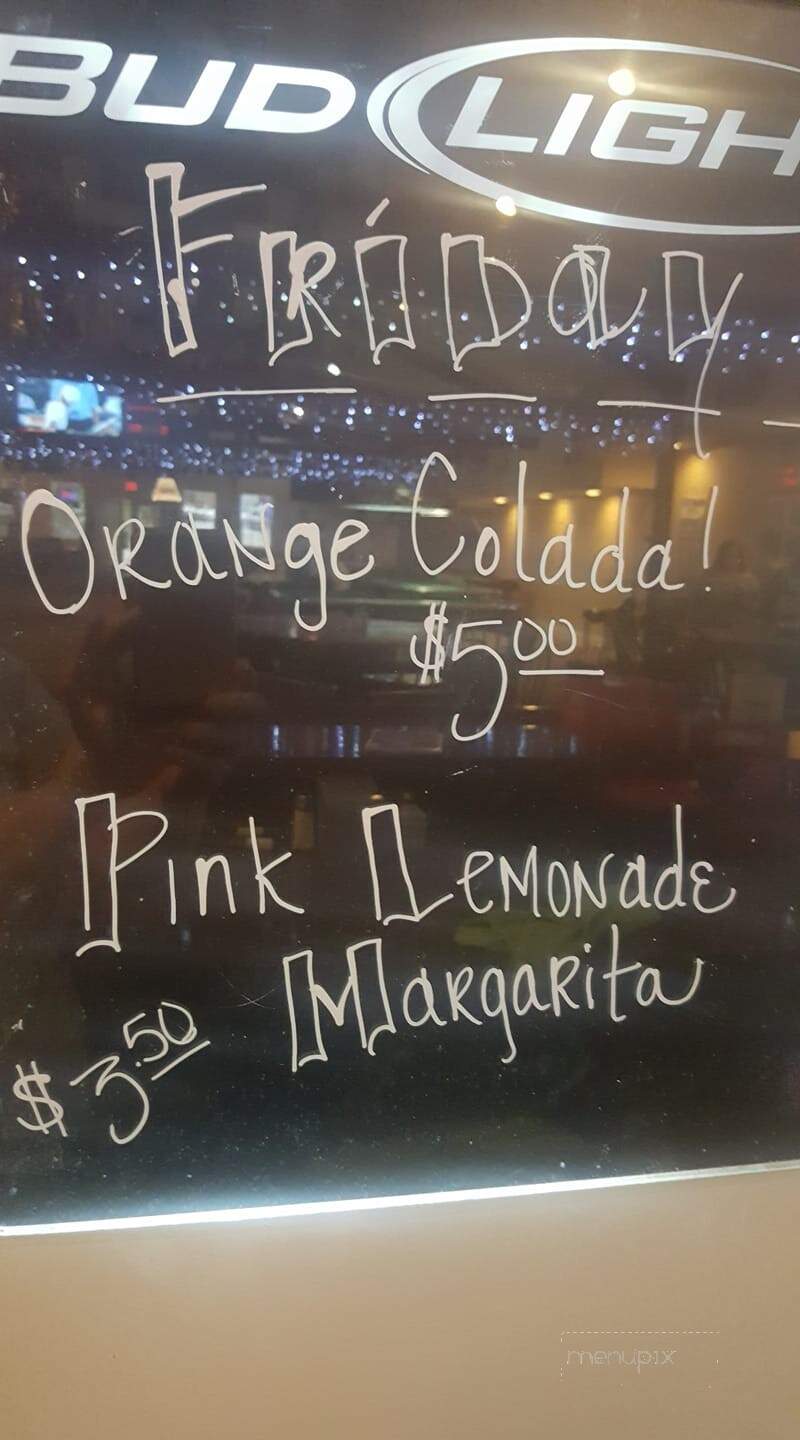 BUD LIGH
Friday
Orange Colada!
$5.00
Pink Lemonade
Margarita
$3.50
menupix